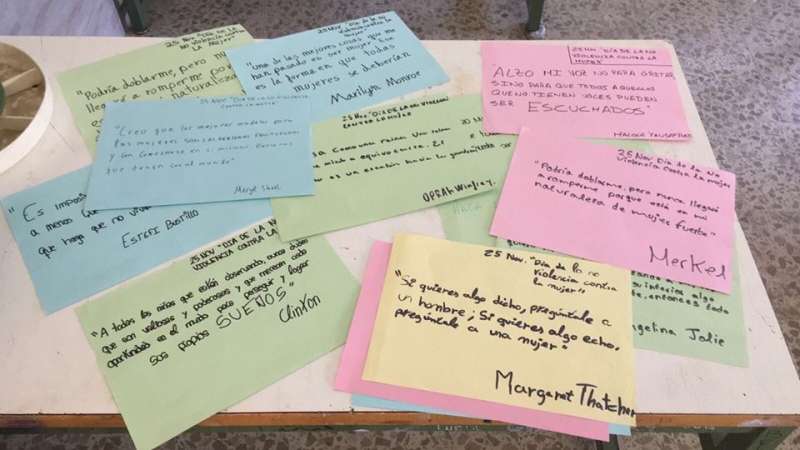 25 Nov "DÍA DE LA NO
VIOLENCIA CONTRA
LA MUJER"
"Podría doblarme, pero
llegó a romperme
naturaleza
25 NOV "DÍA DE LA NO
violencia contra la
mujer"
"Una de las mejores cosas que me
han pasado es ser mujer. Esa
es la forma en que todas
mujeres se deberían
Marilyn Monroe
25 NOV "DÍA DE LA NO
VIOLENCIA CONTRA LA
MUJER"
"ALZO MI VOZ NO PARA GRITAR
SINO PARA QUE TODOS AQUELLOS
QUE NO TIENEN VOCES PUEDEN
SER ESCUCHADOS"
"Creo que las mejores
las mujeres son
y con
que tienen con el mundo"
Meryl
25 NOV "DÍA DE LA NO VIOLENCIA
CONTRA LA MUJER
como una reina. Una reina
miedo a equivocarse. El
es un escalón hacia la grandeza
OPRAH Winfrey.
25 Nov. Día de la no
violencia contra la mujer
"Podría doblarme, pero nunca llegaré
a romperme porque está en mi
naturaleza de mujer fuerte"
Merkel
"Es
a menos que
que haga que no
ESTEFI
25 NOV "DIA DE LA
VIOLENCIA CONTRA LA
"A todas las niñas que están observando, nunca duden
que son valiosas y poderosas y que merecen cada
oportunidad en el mundo para perseguir y lograr
sus propios SUEÑOS"
Clinton
25 Nov. "Día de la no
violencia contra
la mujer"
"Si quieres algo dicho, pregúntale a
un hombre; Si quieres algo echo,
pregúntale a una mujer"
Margaret Thatcher
inferior algo
entonces todo
ngelina Jolie